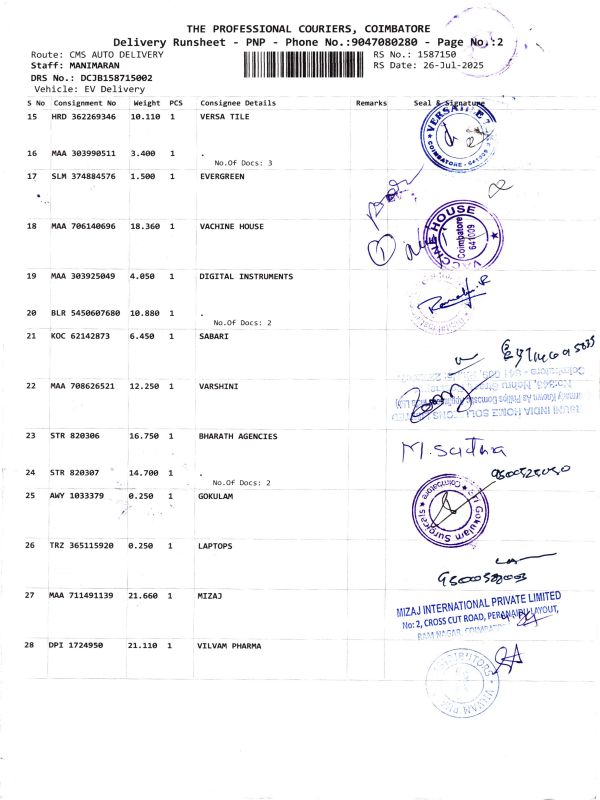 THE PROFESSIONAL COURIERS, COIMBATORE
Delivery Runsheet - PNP - Phone No.:9047080280 - Page No.:2
Route: CMS AUTO DELIVERY RS No.: 1587150
Staff: MANIMARAN RS Date: 26-Jul-2025
DRS No.: DCJB158715002
Vehicle: EV Delivery
S No Consignment No Weight PCS Consignee Details Remarks Seal & Signature
15 HRD 362269346 10.110 1 VERSA TILE
COIMBATORE - 641009
16 MAA 303990511 3.400 1 .
No.Of Docs: 3
17 SLM 374884576 1.500 1 EVERGREEN
18 MAA 706140696 18.360 1 VACHINE HOUSE
VACCINE HOUSE
Coimbatore
641009
1
19 MAA 303925049 4.050 1 DIGITAL INSTRUMENTS
20 BLR 5450607680 10.880 1 .
No.Of Docs: 2
21 KOC 62142873 6.450 1 SABARI
22 MAA 708626521 12.250 1 VARSHINI
23 STR 820306 16.750 1 BHARATH AGENCIES
M. Sudha
24 STR 820307 14.700 1 .
No.Of Docs: 2
25 AWY 1033379 0.250 1 GOKULAM
Sri Gokulam Surgicals
Coimbatore
26 TRZ 365115920 0.250 1 LAPTOPS
27 MAA 711491139 21.660 1 MIZAJ
MIZAJ INTERNATIONAL PRIVATE LIMITED
No: 2, CROSS CUT ROAD, PERANAIDU LAYOUT,
RAM NAGAR, COIMBATORE
28 DPI 1724950 21.110 1 VILVAM PHARMA